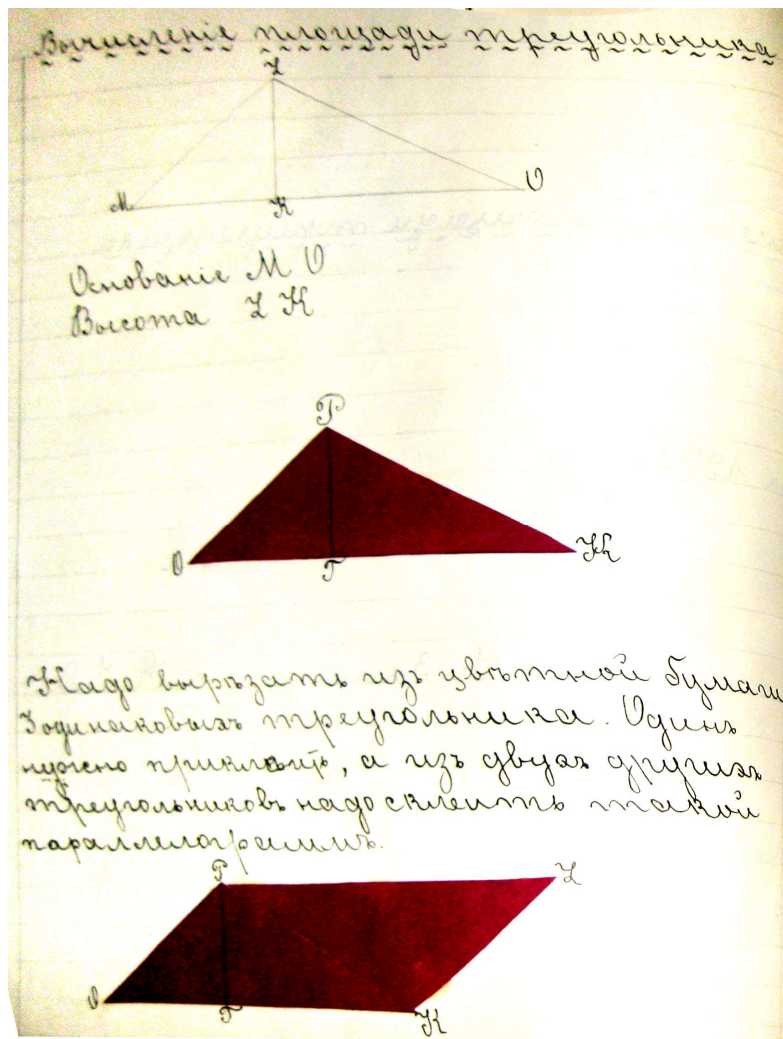 Вычисленіе площади треугольника
М
К
О
Основаніе М О
Высота К
Р
О
Т
К
Надо вырѣзать изъ цвѣтной бумаги
3 одинаковыхъ треугольника. Одинъ
нужно приклеить, а изъ двухъ другихъ
треугольниковъ надо склеить такой
параллелограммъ.
Р
О
Т
К